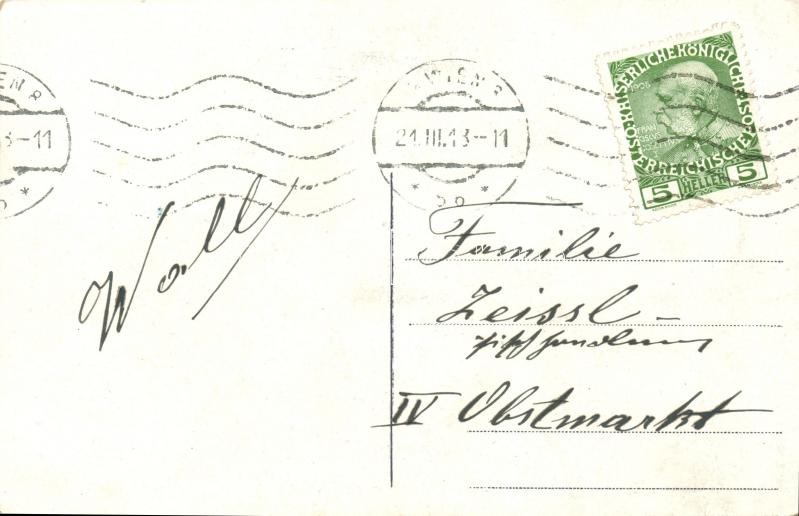 WIEN 8
3-11
WIEN 8
21.III.13-11
* 5b *
KAISERLICHE KÖNIGLICHE ÖSTERREICHISCHE POST
1908
FRANZ
5 HELLER 5
Wall
Familie
Zeissl-
Fischhandlung
IV Obstmarkt